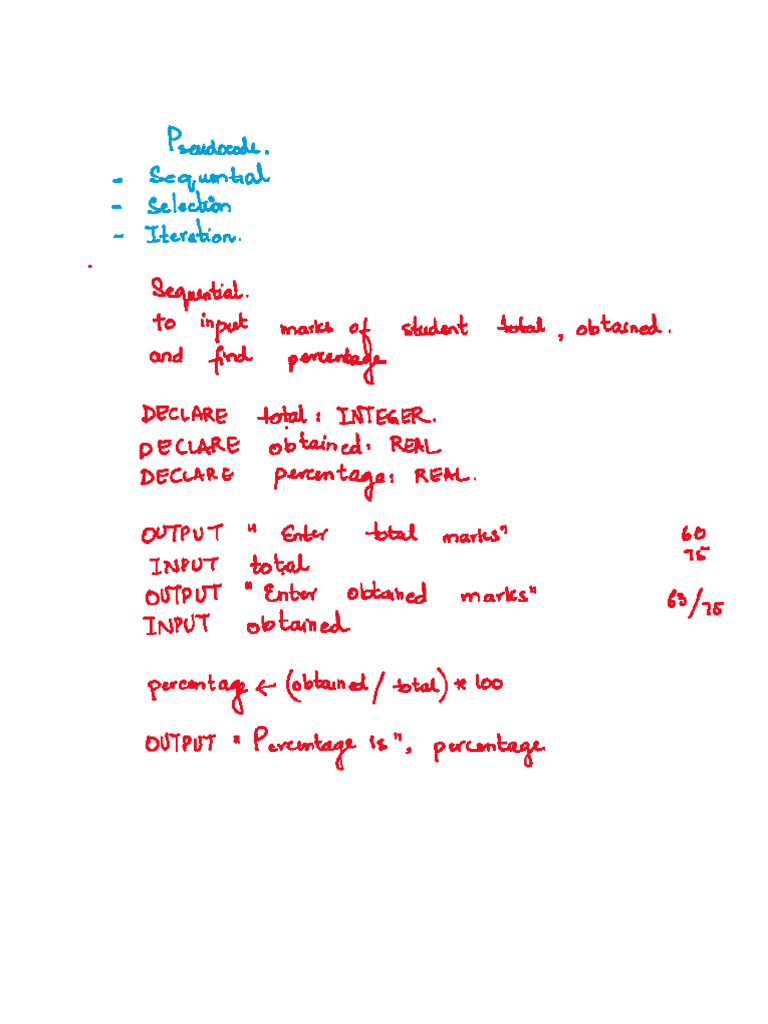 Pseudocode.
- Sequential
- Selection
- Iteration.
Sequential.
to input marks of student total, obtained.
and find percentage
DECLARE total: INTEGER.
DECLARE obtained: REAL
DECLARE percentage: REAL.
OUTPUT " Enter total marks" 60
75
INPUT total
OUTPUT "Enter obtained marks" 63/75
INPUT obtained
percentage ← (obtained / total) * 100
OUTPUT "Percentage is", percentage